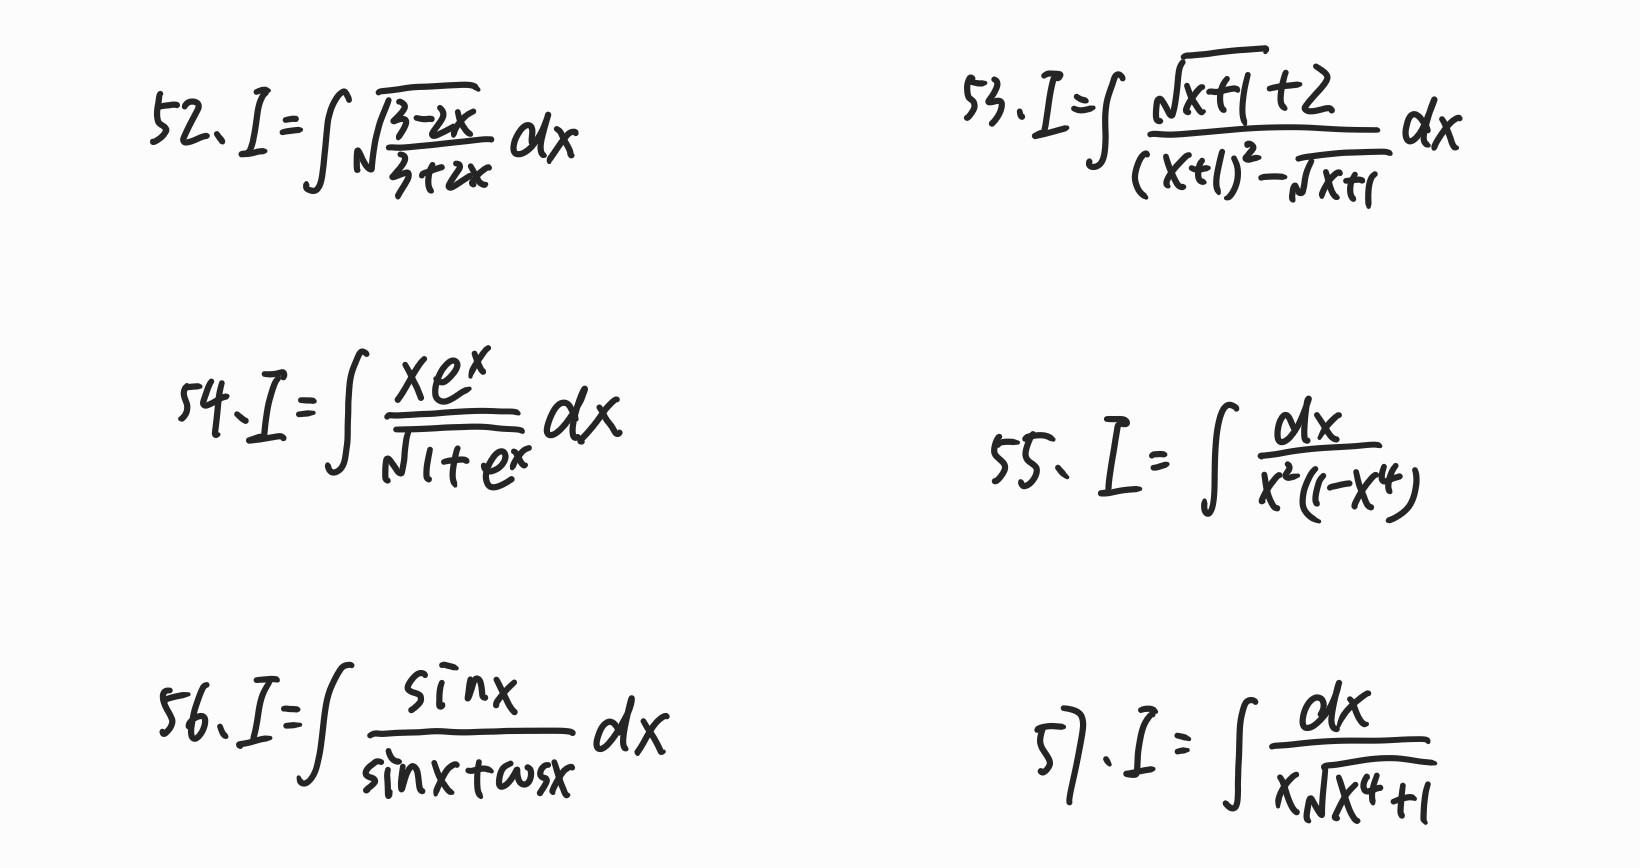 52、I=∫√((3-2x)/(3+2x)) dx
53.I=∫(√(x+1)+2)/((x+1)²-√(x+1)) dx
54、I=∫xeˣ/√(1+eˣ) dx
55、I=∫dx/(x²(1-x⁴))
56、I=∫sinx/(sinx+cosx) dx
57.I=∫dx/(x√(x⁴+1))